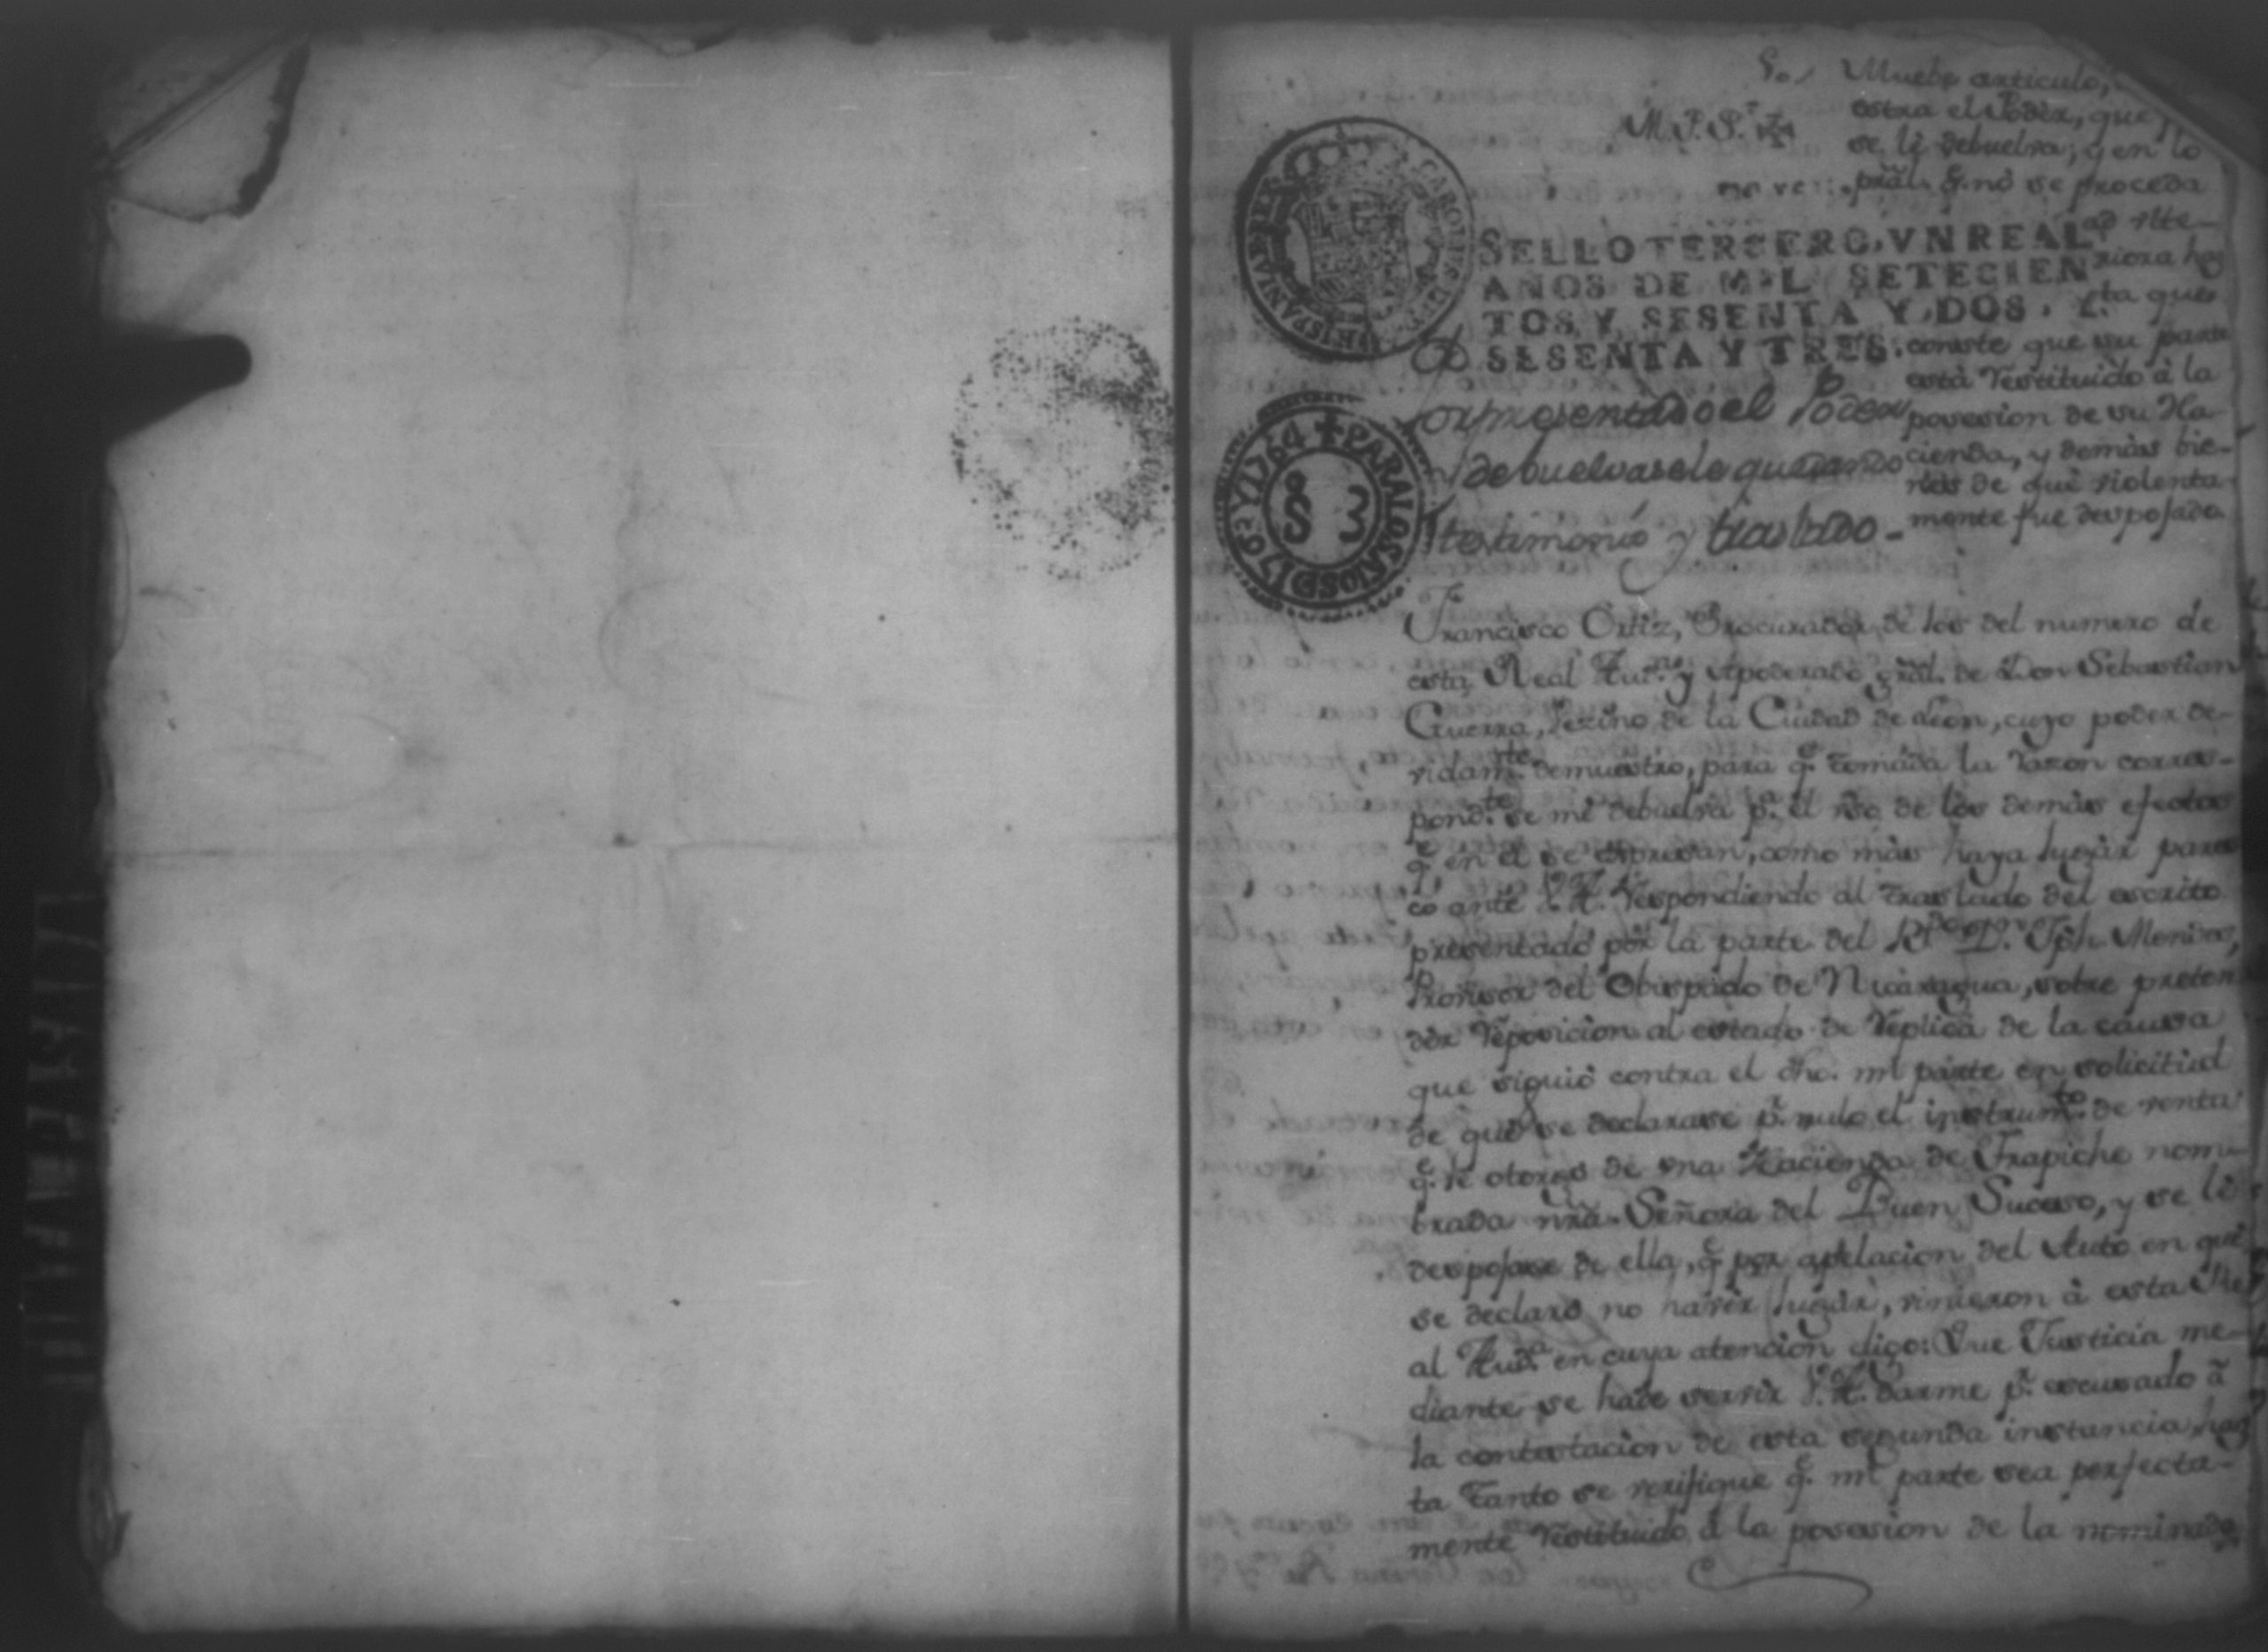 Muebe articulo,
M.P.S.r
ostra el Poder, que
se le debuelva, y en lo
pral. q. no se proceda
CAROLUS HISPANIAR REX
SELLO TERCERO, VN REAL,
AÑOS DE MIL SETECIEN
TOS Y SESENTA Y DOS, Y
SESENTA Y TRES.
ad ulte-
riora has
ta que
conste que su parte
está restituido à la
posesion de su Ha-
cienda, y demàs bie-
nes de què violenta-
mente fue despojada
Por presentado el Poder
debuelvasele quedando
testimonio y traslado-
PARA LOS AÑOS D 1763 Y 1764
S 3
Francisco Ortiz, Procurador de los del numero de
esta Real Aud.na y Apoderado gràl. de Don Sebastian
Guerra, Vezino de la Ciudad de Leon, cuyo poder de-
vidam.te demuestro, para q.e tomada la razon corres-
pond.te se me debuelva p.a el uso de los demàs efectos
q.e en el se expresan, como màs haya lugàr pares-
co ante V.A. respondiendo al traslado del escrito
presentado por la parte del R.do D.n Jph.
Provisor del Obispado de Nicaragua, sobre preten
dèr reposicion al estado de replica de la causa
que siguiò contra el dho. mi parte en solicitud
de què se declarase p.r nulo el instrum.to de venta
q.e le otorgò de una Hacienda de Trapiche nom-
brada nra. Señora del Buen Suceso, y se le
despojase de ella, q.e por apelacion del Auto en què
se declarò no havèr lugàr, vinieron à esta Re
al Aud.a en cuya atencion digo: Que Justicia me-
diante se hade servir V.A. darme p.r escusado à
la contestacion de esta segunda instancia, has
ta tanto se verifique q.e mi parte sea perfecta-
mente restituido à la posesion de la nominada